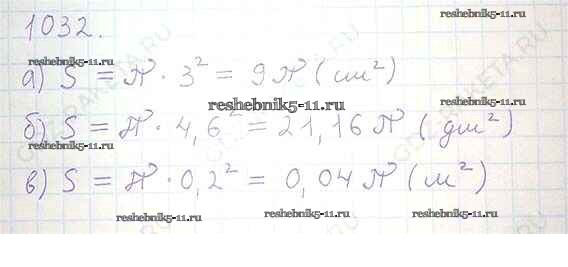 1032.
reshebnik5-11.ru
а) S = π · 3² = 9π (см²)
reshebnik5-11.ru
reshebnik5-11.ru
б) S = π · 4,6² = 21,16π (дм²)
reshebnik5-11.ru
reshebnik5-11.ru
в) S = π · 0,2² = 0,04π (м²)
reshebnik5-11.ru reshebnik5-11.ru reshebnik5-11.ru